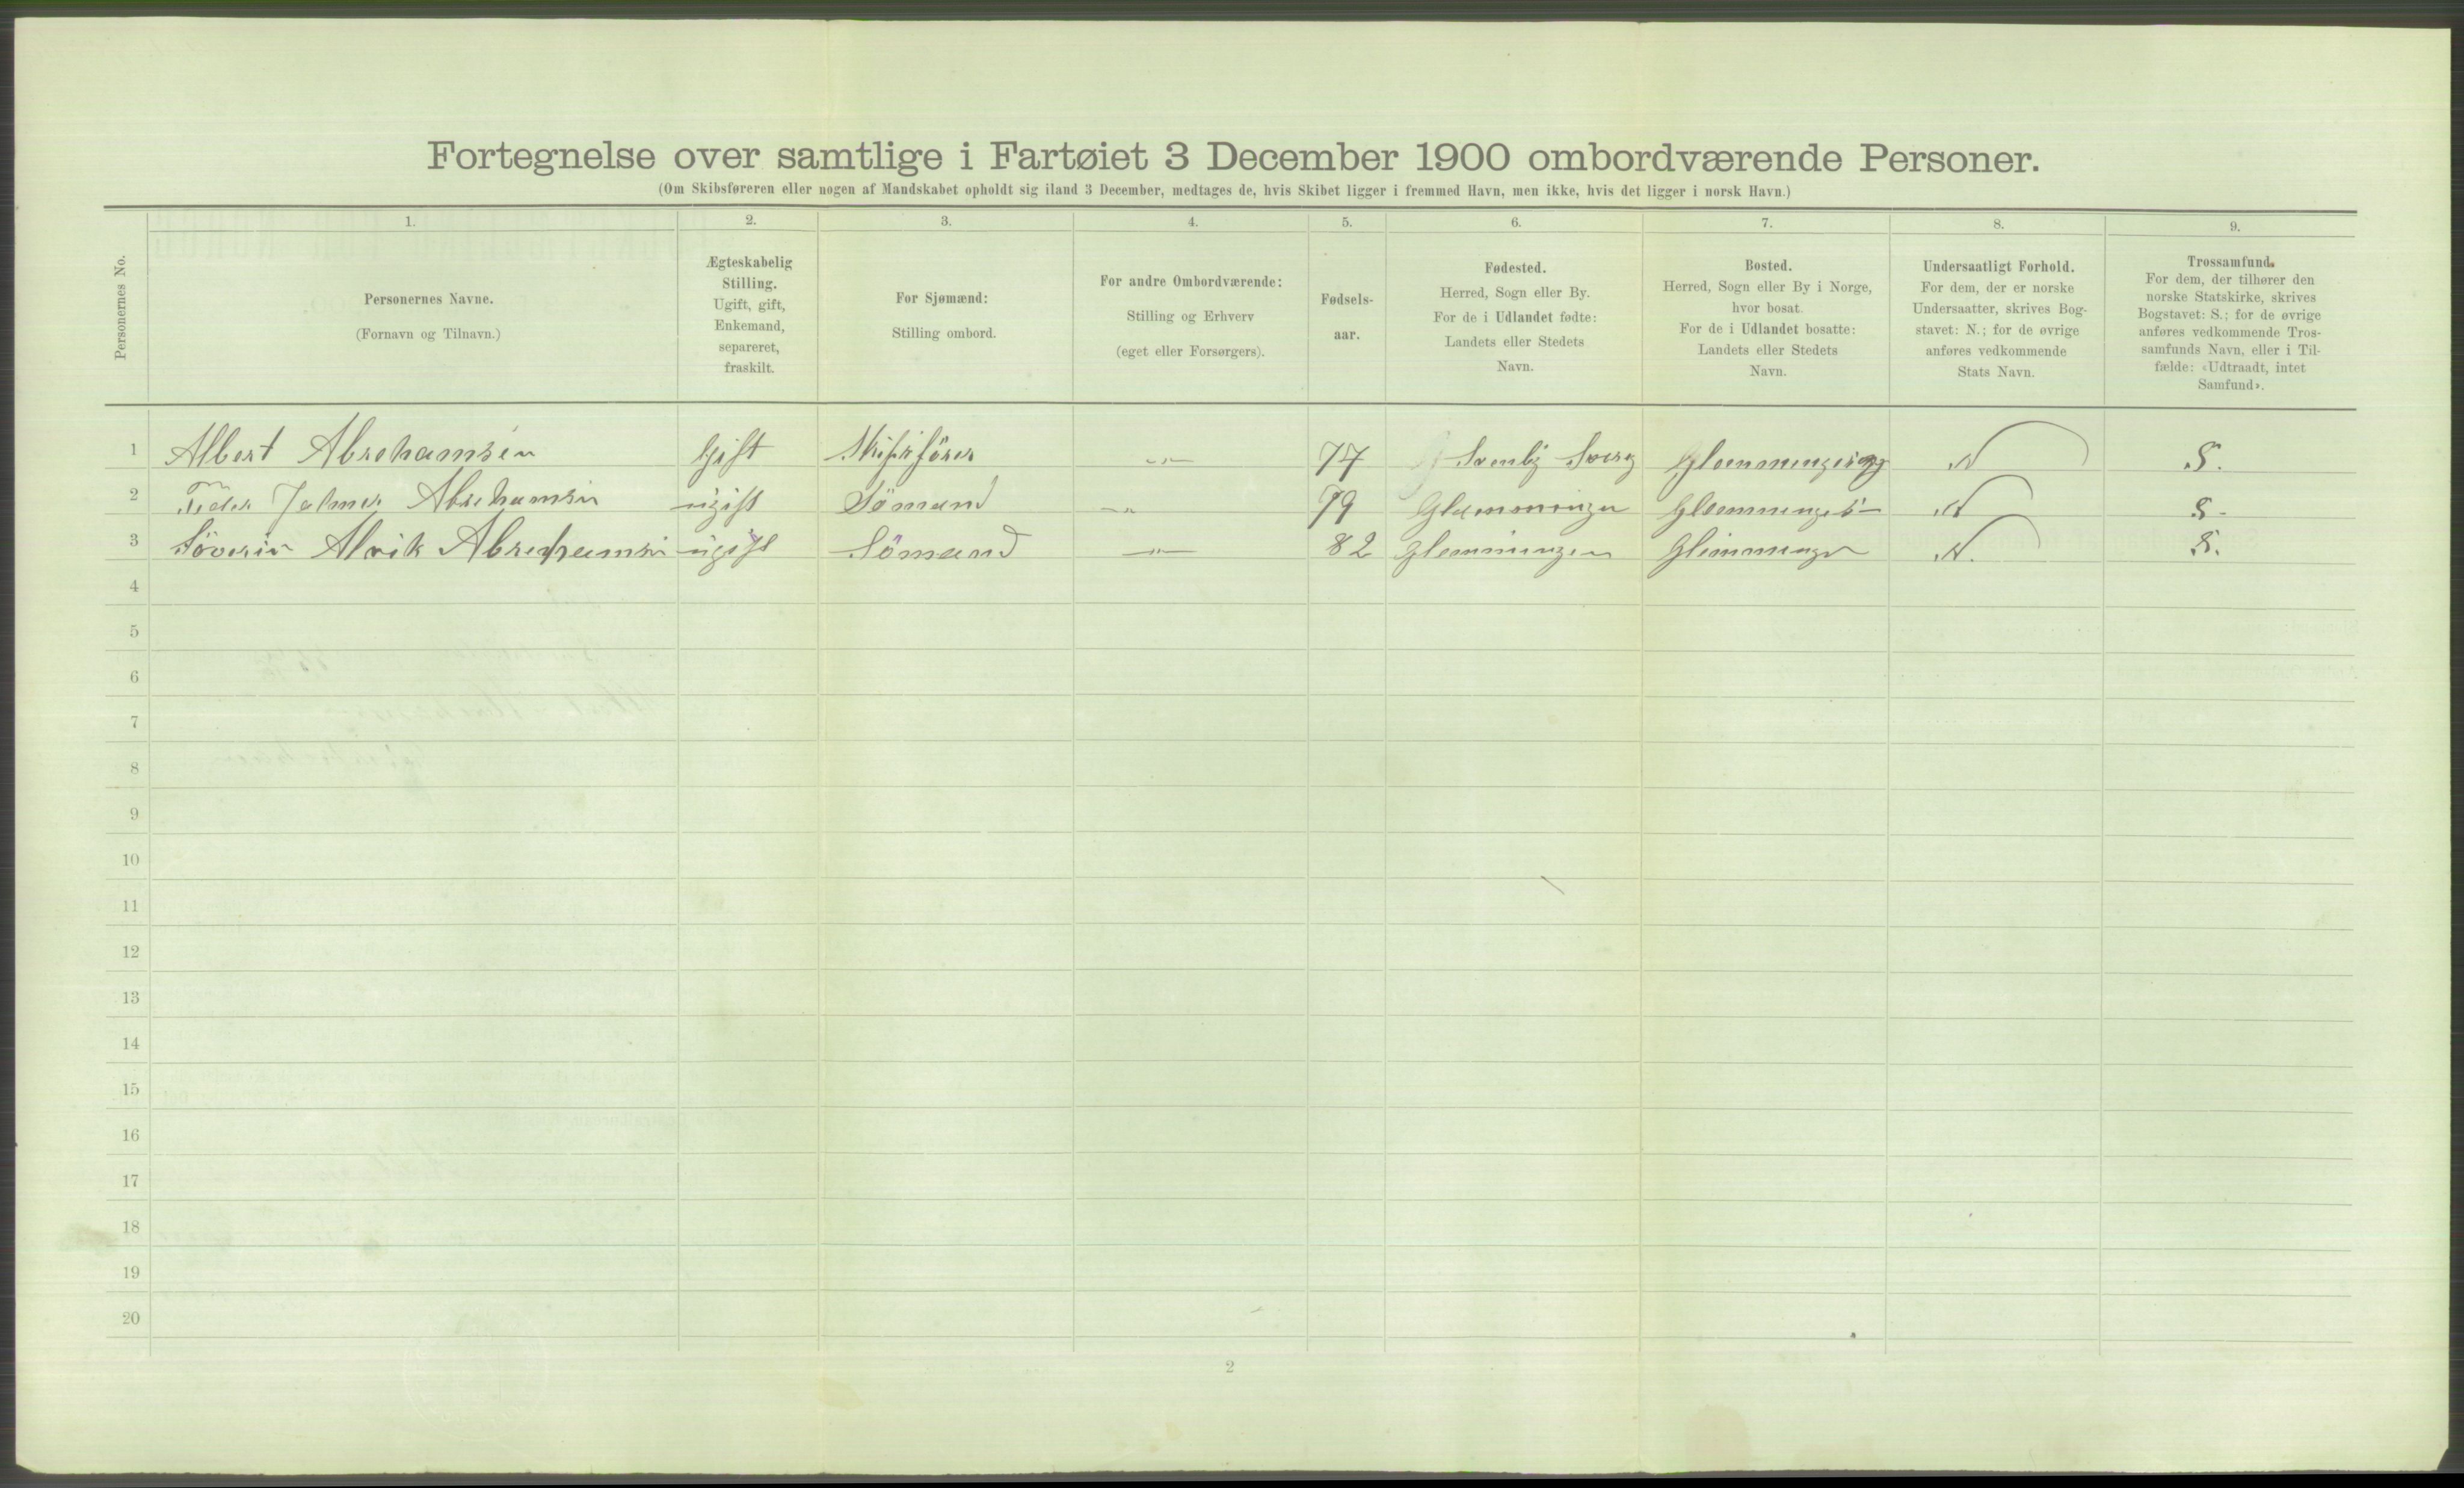 Fortegnelse over samtlige i Fartøiet 3 December 1900 ombordværende Personer.
(Om Skibsføreren eller nogen af Mandskabet opholdt sig iland 3 December, medtages de, hvis Skibet ligger i fremmed Havn, men ikke, hvis det ligger i norsk Havn.)
Personernes No.
1.
Personernes Navne.
(Fornavn og Tilnavn.)
2.
Ægteskabelig
Stilling.
Ugift, gift,
Enkemand,
separeret,
fraskilt.
3.
For Sjømænd:
Stilling ombord.
4.
For andre Ombordværende:
Stilling og Erhverv
(eget eller Forsørgers).
5.
Fødsels-
aar.
6.
Fødested.
Herred, Sogn eller By.
For de i Udlandet fødte:
Landets eller Stedets
Navn.
7.
Bosted.
Herred, Sogn eller By i Norge,
hvor bosat.
For de i Udlandet bosatte:
Landets eller Stedets
Navn.
8.
Undersaatligt Forhold.
For dem, der er norske
Undersaatter, skrives Bog-
stavet: N.; for de øvrige
anføres vedkommende
Stats Navn.
9.
Trossamfund.
For dem, der tilhører den
norske Statskirke, skrives
Bogstavet: S.; for de øvrige
anføres vedkommende Tros-
samfunds Navn, eller i Til-
fælde: «Udtraadt, intet
Samfund».
1 Albert Abrehamsen Gift Skipsförer -"- 77 N S.
2 Abrehamsen ugift Sömand -"- 79 Glemmingen N S.
3 Söverin Alvik Abrehamsen ugift Sömand -"- 82 Glemmingen Glemmingen N. S.
4
5
6
7
8
9
10
11
12
13
14
15
16
17
18
19
20
2